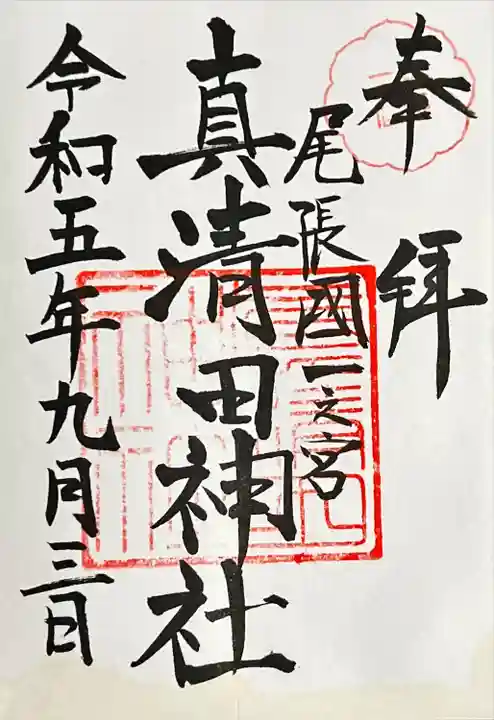 奉拜
尾張國一之宮
真清田神社
令和五年九月三日